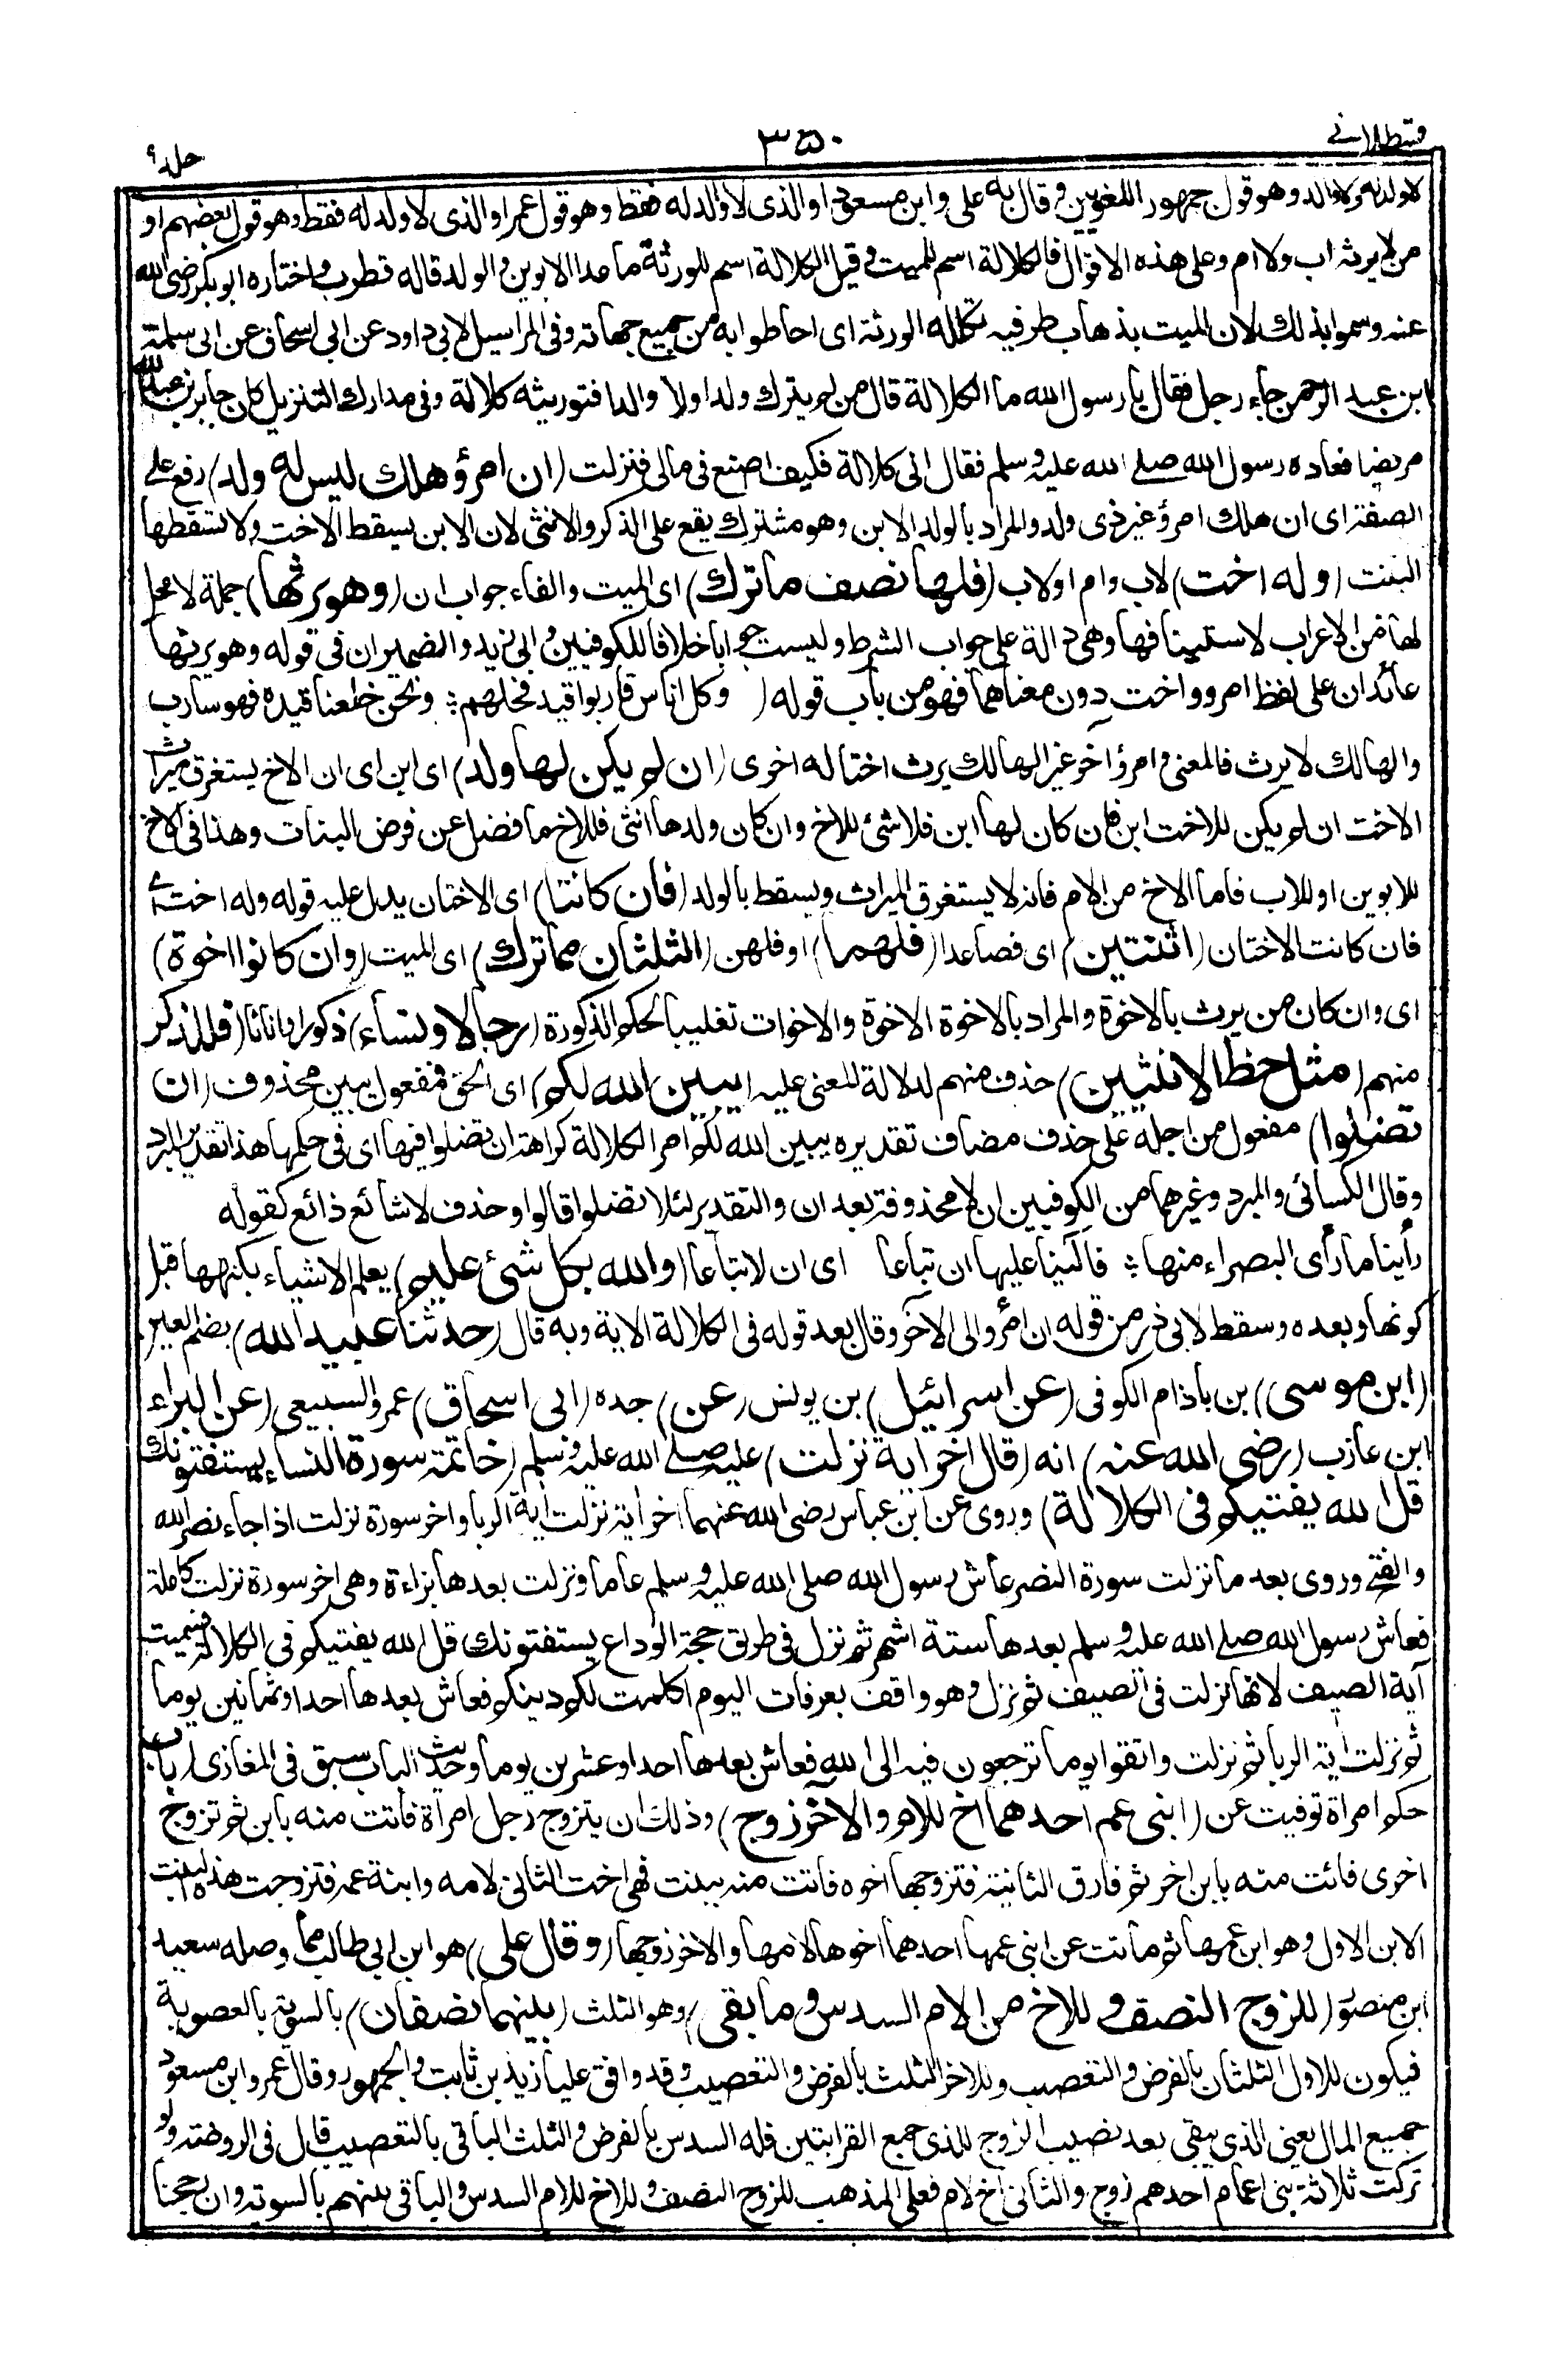 قسطلانے
٣٥٠
جلد ٩
لا ولد له ولا والد وهو قول جمهور اللغويين وقال به على وابن مسعود او الذى لا والد له فقط وهو قول عمر او الذى لا ولد له فقط وهو قول بعضهم او
من لا يرثه اب ولا ام وعلى هذه الاقوال فالكلالة اسم للميت وقيل الكلالة اسم للورثة ما عدا الابوين والولد قاله قطرب واختاره ابو بكر رضى الله
عنه وسموا بذلك لان الميت بذهاب طرفيه تكلله الورثة اى احاطوا به من جميع جهاته وفى المراسيل لابى داود عن ابى اسحاق عن ابى سلمة
ابن عبد الرحمن جاء رجل فقال يا رسول الله ما الكلالة قال من لم يترك ولدا ولا والدا فتوريثه كلالة وفى مدارك التنزيل كان جابر بن عبد الله
مريضا فعاده رسول الله صلے الله عليه وسلم فقال انى كلالة فكيف اصنع فى مالى فنزلت (ان امرؤ هلك ليس له ولد) رفع على
الصفة اى ان هلك امرؤ غير ذى ولد والمراد بالولد الابن وهو مشترك يقع على الذكر والانثى لان الابن يسقط الاخت ولا تسقطها
البنت (وله اخت) لاب وام او لاب (فلها نصف ما ترك) اى الميت والفاء جواب ان (وهو يرثها) جملة لا محل
لها من الاعراب لاستينافها وهى دالة على جواب الشرط وليست جوابا خلافا للكوفيين وابى زيد والضميران فى قوله وهو يرثها
عائدان على لفظ امرؤ واخت دون معناهما فهو من باب قوله ( وكل اناس قاربوا قيد فحلهم ؞ ونحن خلعنا قيده فهو سارب
والهالك لا يرث فالمعنى وامرؤ آخر غير الهالك يرث اختا له اخرى (ان لم يكن لها ولد) اى ابن اى ان الاخ يستغرق ميراث
الاخت ان لم يكن للاخت ابن فان كان لها ابن فلا شئ للاخ وان كان ولدها انثى فللاخ ما فضل عن فرض البنات وهذا فى الاخ
للابوين او للاب فاما الاخ من الام فانه لا يستغرق الميراث ويسقط بالولد (فان كانتا) اى الاختان يدل عليه قوله وله اخت اى
فان كانت الاختان (اثنتين) اى فصاعدا (فلهما) او فلهن (الثلثان مما ترك) اى الميت (وان كانوا اخوة)
اى وان كان من يرث بالاخوة والمراد بالاخوة الاخوة والاخوات تغليبا لحكم الذكورة (رجالا ونساء) ذكورا واناثا (فللذكر
منهم (مثل حظ الانثيين) حذف منهم لدلالة المعنى عليه (يبين الله لكم) اى الحق فمفعول يبين محذوف (ان
تضلوا) مفعول من اجله على حذف مضاف تقديره يبين الله لكم امر الكلالة كراهة ان تضلوا فيها اى فى حكمها هذا تقدير المبرد
وقال الكسائى والمبرد وغيرهما من الكوفيين ان لا محذوفة بعد ان والتقدير لئلا تضلوا قالوا وحذف لا شائع ذائع كقوله
رأينا ما رأى البصراء منها ؞ فآلينا عليها ان تباعا اى ان لا تباعا (والله بكل شئ عليم) يعلم الاشياء بكنهها قبل
كونها وبعده وسقط لابى ذر من قوله ان امرؤ الى الآخر وقال بعد قوله فى الكلالة الاية وبه قال (حدثنا عبيد الله) بضم العين
(ابن موسى) بن باذام الكوفى (عن اسرائيل) بن يونس (عن) جده (ابى اسحاق) عمرو السبيعى (عن البراء
ابن عازب (رضى الله عنه) انه (قال اخر اية نزلت) عليه صلے الله عليه وسلم (خاتمة سورة النساء يستفتونك
قل الله يفتيكم فى الكلالة) وروى عن ابن عباس رضى الله عنهما اخر اية نزلت اية الربا واخر سورة نزلت اذا جاء نصر الله
والفتح وروى بعد ما نزلت سورة النصر عاش رسول الله صلى الله عليه وسلم عاما ونزلت بعدها براءة وهى اخر سورة نزلت كاملة
فعاش رسول الله صلے الله عليه وسلم بعدها ستة اشهر ثم نزل فى طريق حجة الوداع يستفتونك قل الله يفتيكم فى الكلالة فسميت
آية الصيف لانها نزلت فى الصيف ثم نزل وهو واقف بعرفات اليوم اكملت لكم دينكم فعاش بعدها احدا وثمانين يوما
ثم نزلت اية الربا ثم نزلت واتقوا يوما ترجعون فيه الى الله فعاش بعدها احدا وعشرين يوما وحديث الباب سبق فى المغازى (باب
حكم امرأة توفيت عن (ابنى عم احدهما اخ للام والآخر زوج) وذلك ان يتزوج رجل امرأة فأتت منه بابن ثم تزوج
اخرى فاتت منه بابن اخر ثم فارق الثانية فتزوجها اخوه فاتت منه ببنت فهى اخت الثانى لامه وابنة عمه فتزوجت هذه البنت
الابن الاول وهو ابن عمها ثم ماتت عن ابنى عمها احدهما اخوها لامها والاخر زوجها (وقال على) هو ابن ابى طالب مما وصله سعيد
ابن منصور (للزوج النصف وللاخ من الام السدس وما بقى) وهو الثلث (بينهما نصفان) بالسوية بالعصوبة
فيكون للاول الثلثان بالفرض والتعصيب وللاخر الثلث بالفرض والتعصيب وقد وافق عليا زيد بن ثابت والجمهور وقال عمر وابن مسعود
جميع المال يعنى الذى يبقى بعد نصيب الزوج للذى جمع القرابتين فله السدس بالفرض والثلث الباقى بالتعصيب قال فى الروضة ولو
تركت ثلاثة بنى اعمام احدهم زوج والثانى اخ لام فعلى المذهب للزوج النصف وللاخ للام السدس والباقى بينهم بالسوية وان رجحنا